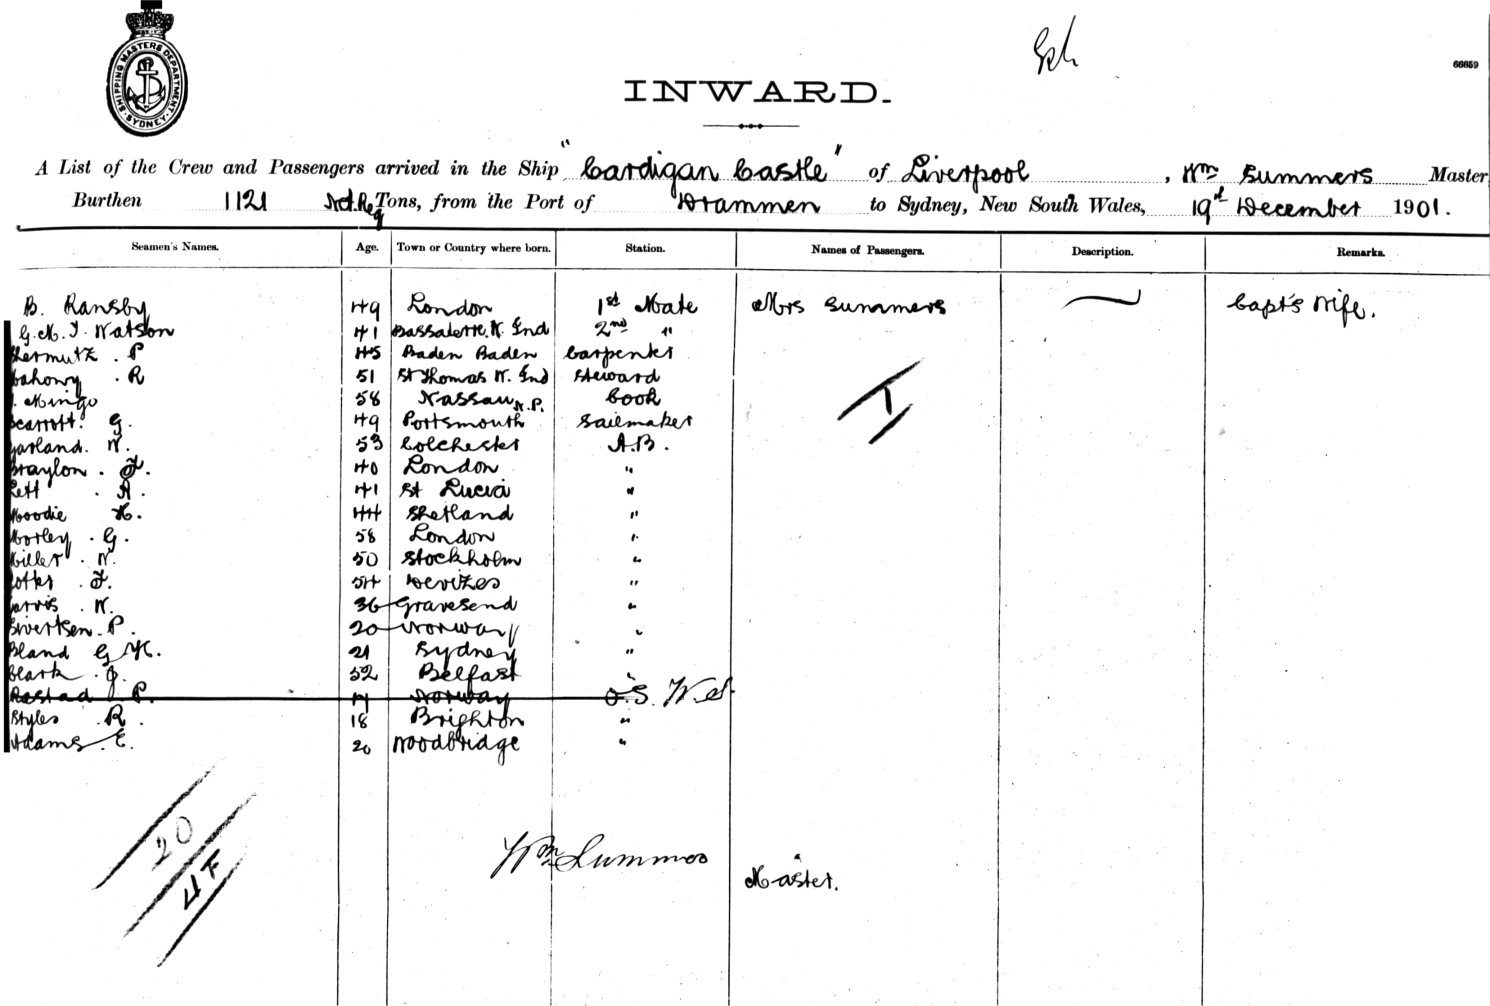 SHIPPING MASTERS DEPARTMENT SYDNEY
66659
INWARD.
A List of the Crew and Passengers arrived in the Ship "Cardigan Castle" of Liverpool, Wm Summers Master
Burthen 1121 Net. Reg Tons, from the Port of Drammen to Sydney, New South Wales, 19th December 1901.
Seamen's Names. Age. Town or Country where born. Station. Names of Passengers. Description. Remarks.
B. Ransby 49 London 1st Mate Mrs Summers Capt's Wife.
G. M. J. Watson 41 W. Ind 2nd "
P 45 Baden Baden Carpenter
R 51 St Thomas W. Ind Steward
Mingo 58 Nassau N.P. Cook
Scarrott. G. 49 Portsmouth Sailmaker
Garland. W. 53 Colchester A.B.
Braylon. F. 40 London "
Lett. A. 41 St Lucia "
Moodie H. 44 Shetland "
Morley. G. 58 London "
Miller. W. 50 Stockholm "
Potter. F. 54 Devizes "
Jarvis. W. 36 Gravesend "
Sivertsen. P. 20 Norway "
Bland G. H. 21 Sydney "
Clark. J. 52 Belfast "
Rostad P. 17 Norway O.S.
Styles. R. 18 Brighton "
Adams. E. 20 Woodbridge "
20
Wm Summers
Master.